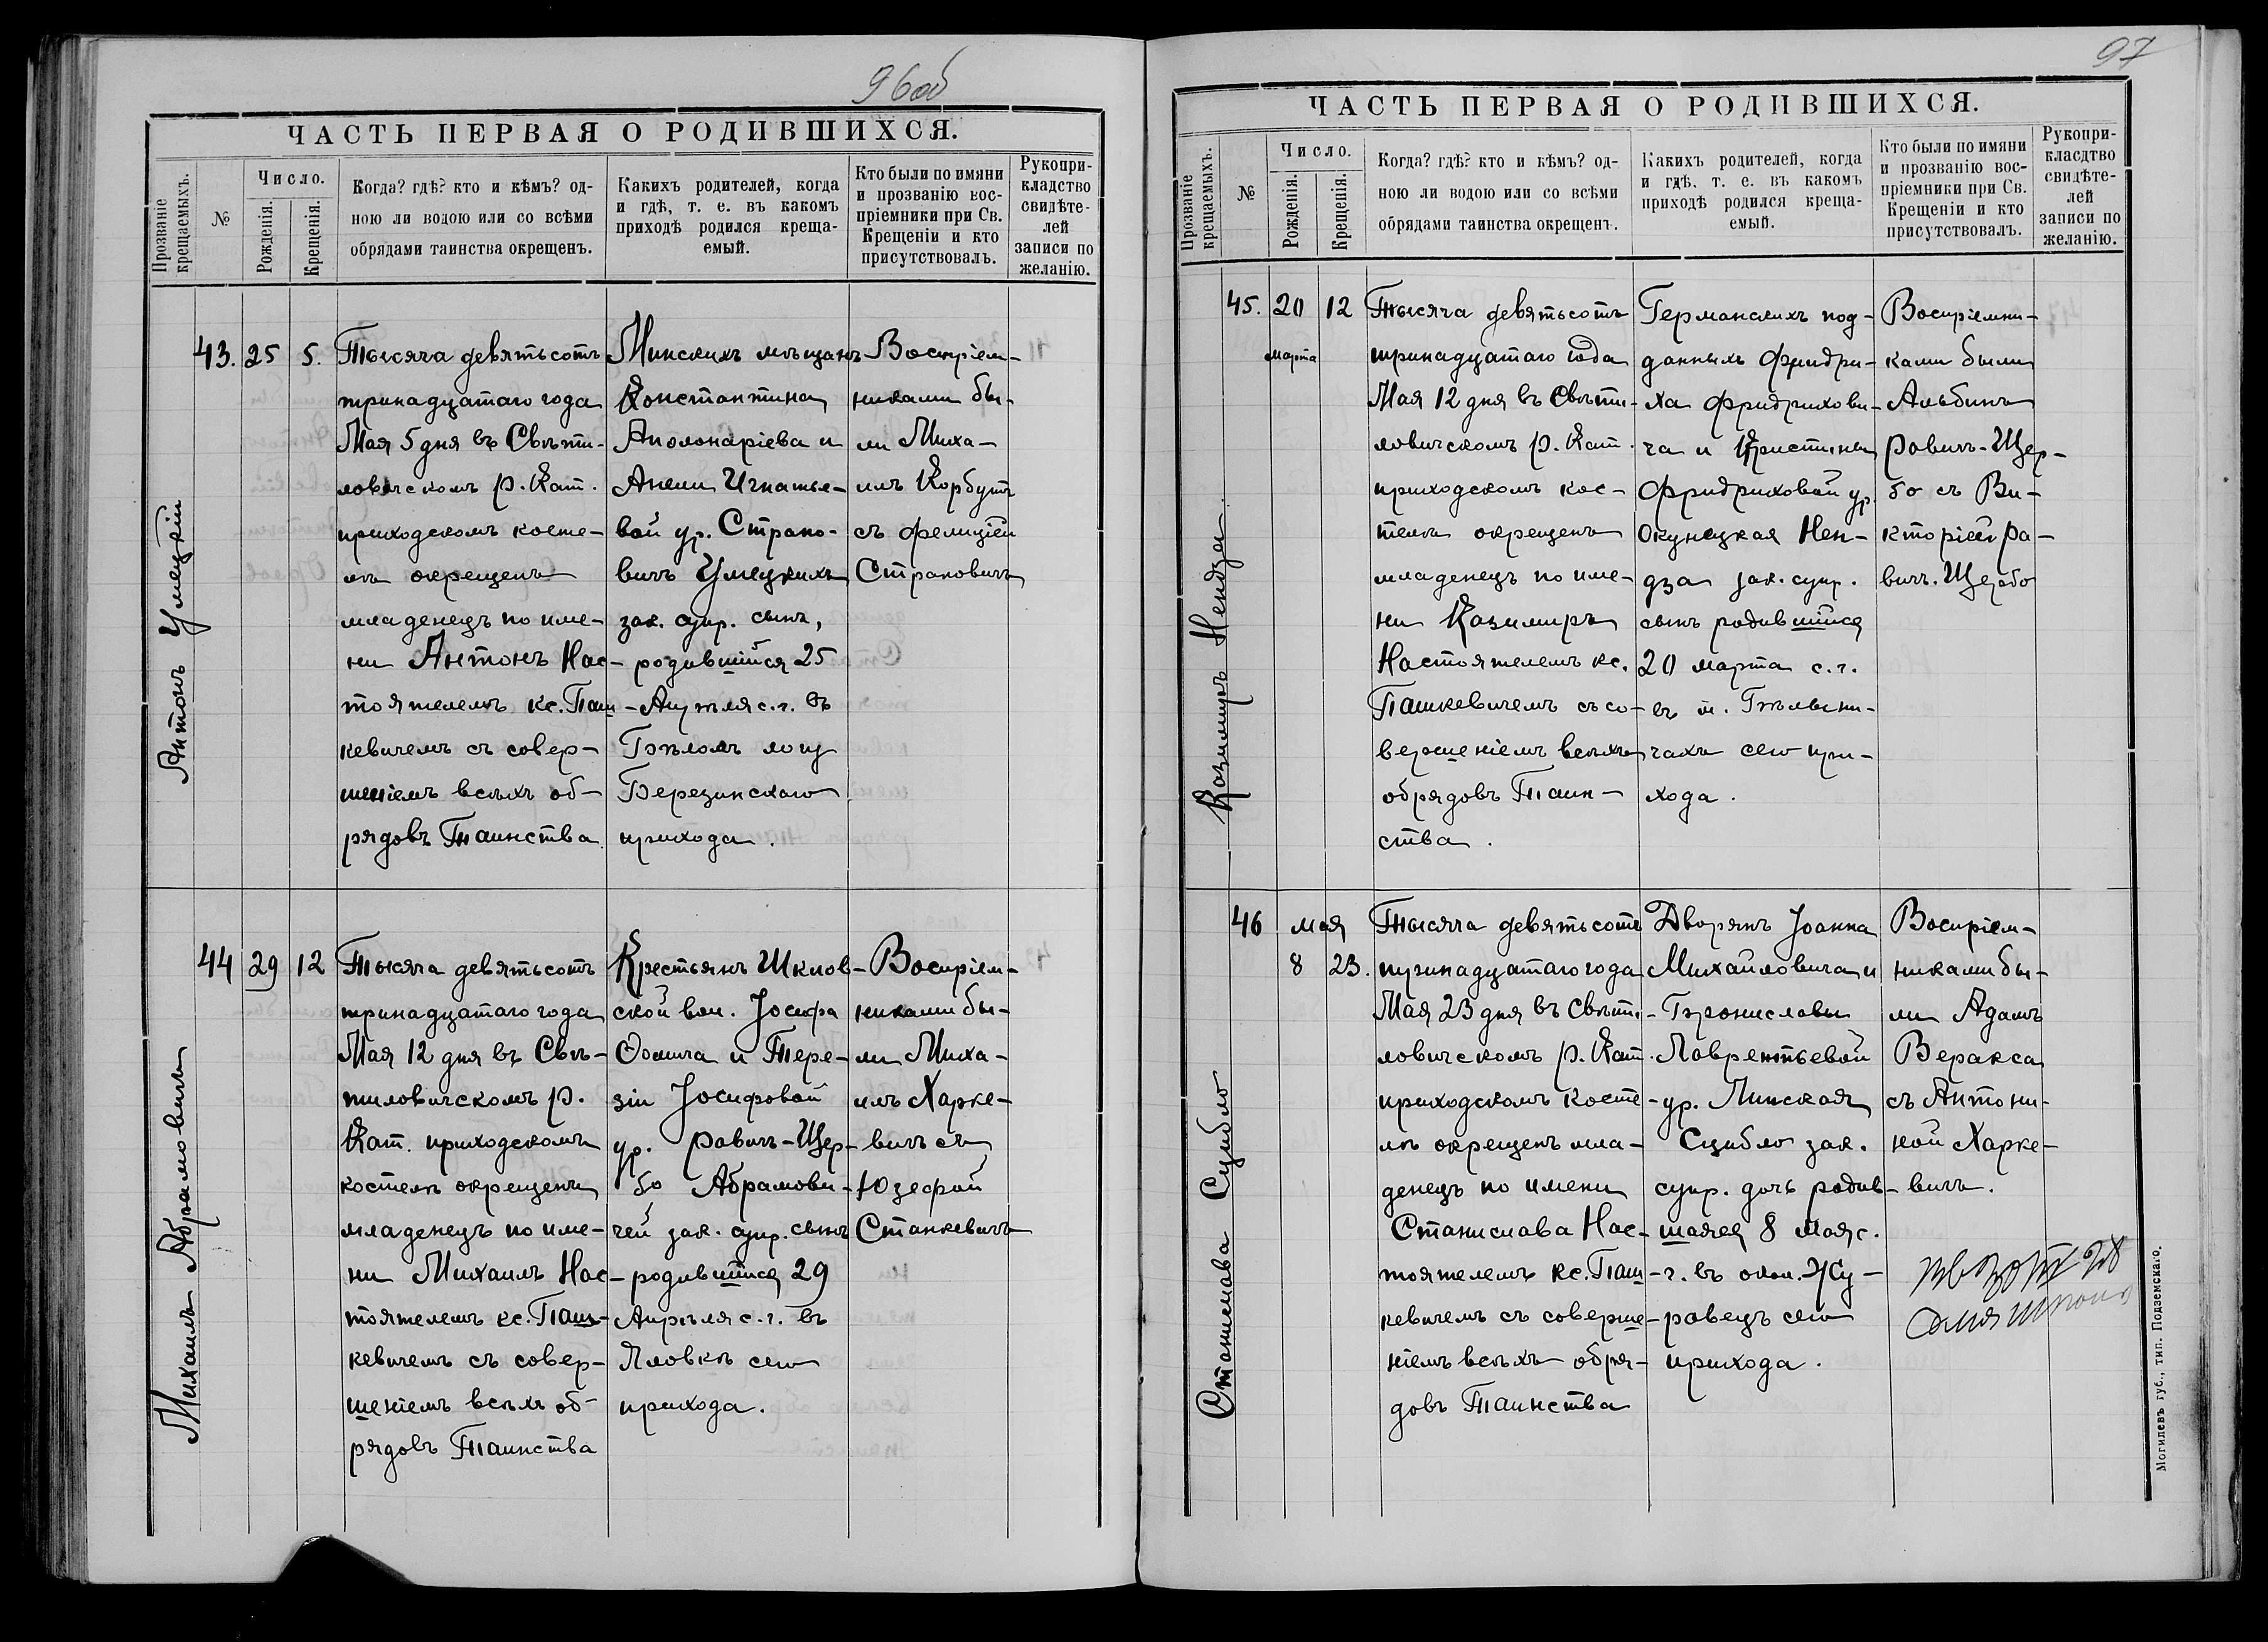 96об
ЧАСТЬ ПЕРВАЯ О РОДИВШИХСЯ.
Прозваніе крещаемыхъ.
№
Число.
Рожденія.
Крещенія.
Когда? гдѣ? кто и кѣмъ? од-
ною ли водою или со всѣми
обрядами таинства окрещенъ.
Какихъ родителей, когда
и гдѣ, т. е. въ какомъ
приходѣ родился креща-
емый.
Кто были по имяни
и прозванію вос-
пріемники при Св.
Крещеніи и кто
присутствовалъ.
Рукопри-
кладство
свидѣте-
лей
записи по
желанію.
Антонъ Умецкій
43.
25
5.
Тысяча девятьсотъ
тринадцатаго года
Мая 5 дня въ Свѣти-
ловичскомъ р. Кат.
приходскомъ косте-
лѣ окрещенъ
младенецъ по име-
ни Антонъ Нас-
тоятелемъ кс. Паш-
кевичемъ съ совер-
шеніемъ всѣхъ об-
рядовъ Таинства.
Минскихъ мѣщанъ
Константина
Аполонаріева и
Анели Игнатье-
вой ур. Страно-
вичъ Умецкихъ
зак. супр. сынъ,
родившійся 25
Апрѣля с. г. въ
Бѣломъ логу
Березинскаго
прихода.
Воспріем-
никами бы-
ли Миха-
илъ Корбутъ
съ Фелиціей
Страновичъ
Михаилъ Абрамовичъ
44
29
12
Тысяча девятьсотъ
тринадцатаго года
Мая 12 дня въ Свѣ-
тиловичскомъ р.
Кат. приходскомъ
костелѣ окрещенъ
младенецъ по име-
ни Михаилъ Нас-
тоятелемъ кс. Паш-
кевичемъ съ совер-
шеніемъ всѣхъ об-
рядовъ Таинства
Крестьянъ Шклов-
ской вол. Іосифа
Ѳомича и Тере-
зіи Іосифовой
ур. Равичъ-Щер-
бо Абрамови-
чей зак. супр. сынъ
родившійся 29
Апрѣля с. г. въ
Яловкѣ сего
прихода.
Воспріем-
никами бы-
ли Миха-
илъ Харке-
вичъ съ
Юзефой
Станкевичъ
97
ЧАСТЬ ПЕРВАЯ О РОДИВШИХСЯ.
Прозваніе крещаемыхъ.
№
Число.
Рожденія.
Крещенія.
Когда? гдѣ? кто и кѣмъ? од-
ною ли водою или со всѣми
обрядами таинства окрещенъ.
Какихъ родителей, когда
и гдѣ, т. е. въ какомъ
приходѣ родился креща-
емый.
Кто были по имяни
и прозванію вос-
пріемники при Св.
Крещеніи и кто
присутствовалъ.
Рукопри-
класдтво
свидѣте-
лей
записи по
желанію.
Казимиръ Нендза
45.
20
марта
12
Тысяча девятьсотъ
тринадцатаго года
Мая 12 дня въ Свѣти-
ловичскомъ р. Кат.
приходскомъ кос-
телѣ окрещенъ
младенецъ по име-
ни Казимиръ
Настоятелемъ кс.
Пашкевичемъ съ со-
вершеніемъ всѣхъ
обрядовъ Таин-
ства.
Германскихъ под-
данныхъ Фридри-
ха Фридрихови-
ча и Кристины
Фридриховой ур.
Окунецкая Нен-
дза зак. супр.
сынъ родившійся
20 марта с. г.
въ м. Бѣлыни-
чахъ сего при-
хода.
Воспріемни-
ками были
Альбинъ
Равичъ-Щер-
бо съ Ви-
кторіей Ра-
вичъ-Щербо
Станислава Сцибло
46
мая
8
23.
Тысяча девятьсотъ
тринадцатаго года
Мая 23 дня въ Свѣти-
ловичскомъ р. Кат.
приходскомъ косте-
лѣ окрещенъ мла-
денецъ по имени
Станислава Нас-
тоятелемъ кс. Паш-
кевичемъ съ соверше-
ніемъ всѣхъ обря-
довъ Таинства
Дворянъ Іоанна
Михайловича и
Брониславы
Лаврентьевой
ур. Линская
Сцибло зак.
супр. дочь родив-
шаяся 8 мая с.
г. въ окол. Жу-
равецъ сего
прихода.
Воспріем-
никами бы-
ли Адамъ
Веракса
съ Антони-
ной Харке-
вичъ.
Могилевъ губ., тип. Подземскаго.